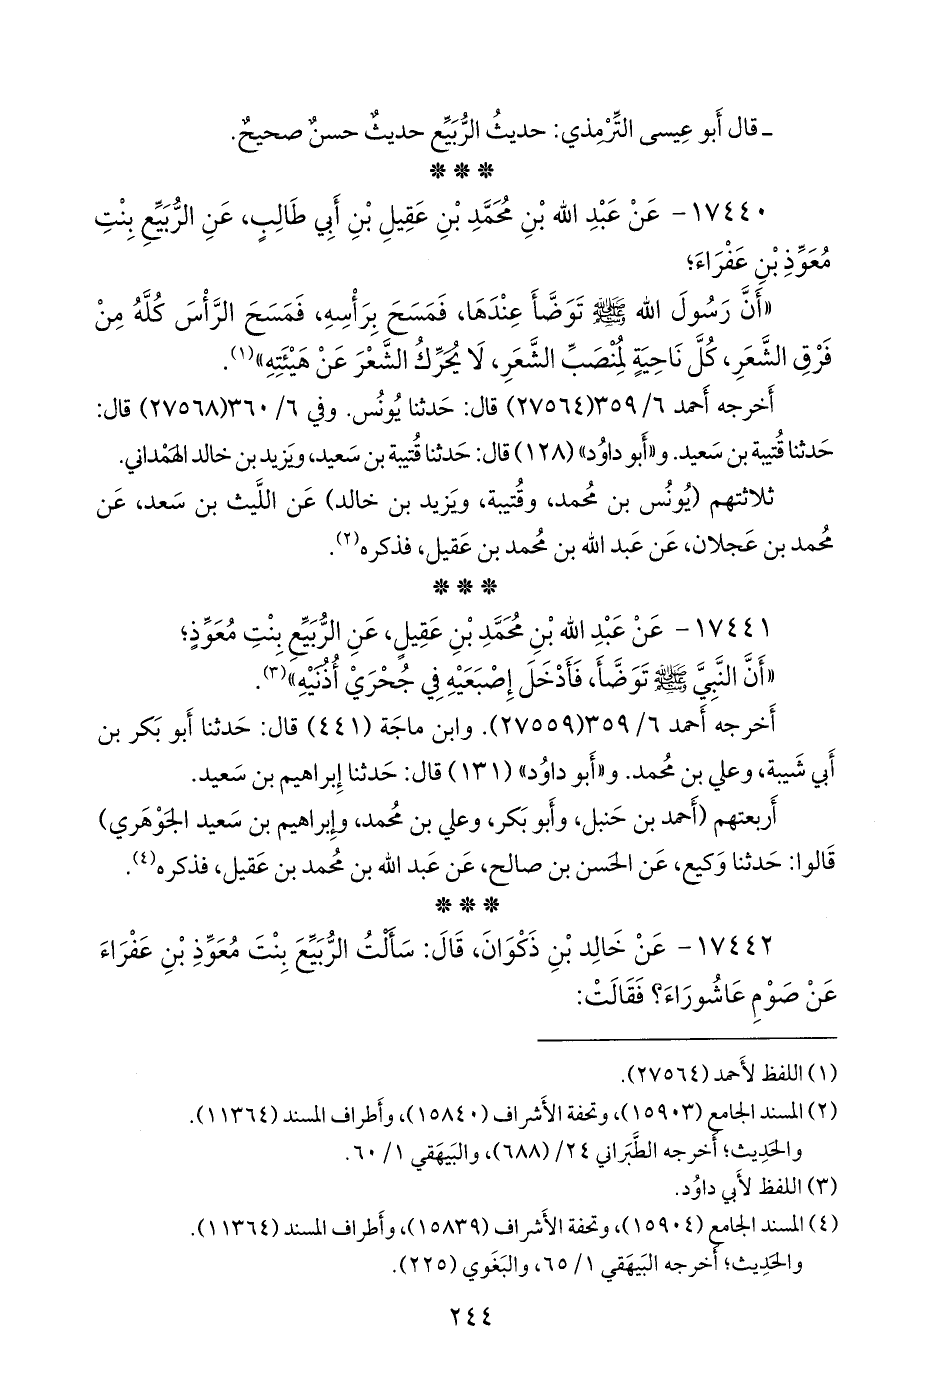 ـ قال أَبو عِيسى التِّرْمِذي: حديثُ الرُّبَيِّع حديثٌ حسنٌ صحيحٌ.
* * *
١٧٤٤٠ - عَنْ عَبْدِ الله بْنِ مُحَمَّدِ بْنِ عَقِيلِ بْنِ أَبِي طَالِبٍ، عَنِ الرُّبَيِّعِ بِنْتِ
مُعَوِّذِ بْنِ عَفْرَاءَ؛
«أَنَّ رَسُولَ الله ﷺ تَوَضَّأَ عِنْدَهَا، فَمَسَحَ بِرَأْسِهِ، فَمَسَحَ الرَّأْسَ كُلَّهُ مِنْ
فَرْقِ الشَّعَرِ، كُلَّ نَاحِيَةٍ لِمُنْصَبِّ الشَّعَرِ، لَا يُحَرِّكُ الشَّعْرَ عَنْ هَيْئَتِهِ»(١).
أَخرجه أَحمد ٦/ ٣٥٩(٢٧٥٦٤) قال: حَدثنا يُونُس. وفي ٦/ ٣٦٠(٢٧٥٦٨) قال:
حَدثنا قُتيبة بن سَعيد. و«أَبو داوُد» (١٢٨) قال: حَدثنا قُتيبة بن سَعيد، ويَزيد بن خالد الهَمْداني.
ثلاثتهم (يُونُس بن مُحمد، وقُتيبة، ويَزيد بن خالد) عَن اللَّيث بن سَعد، عَن
مُحمد بن عَجلان، عَن عَبد الله بن مُحمد بن عَقيل، فذكره(٢).
* * *
١٧٤٤١ - عَنْ عَبْدِ الله بْنِ مُحَمَّدِ بْنِ عَقِيلٍ، عَنِ الرُّبَيِّعِ بِنْتِ مُعَوِّذٍ؛
«أَنَّ النَّبِيَّ ﷺ تَوَضَّأَ، فَأَدْخَلَ إِصْبَعَيْهِ فِي جُحْرَيْ أُذُنَيْهِ»(٣).
أَخرجه أَحمد ٦/ ٣٥٩(٢٧٥٥٩). وابن ماجَة (٤٤١) قال: حَدثنا أَبو بَكر بن
أَبي شَيبة، وعلي بن مُحمد. و«أَبو داوُد» (١٣١) قال: حَدثنا إِبراهيم بن سَعيد.
أَربعتهم (أَحمد بن حَنبل، وأَبو بَكر، وعلي بن مُحمد، وإِبراهيم بن سَعيد الجَوْهَري)
قَالوا: حَدثنا وَكيع، عَن الحَسن بن صالح، عَن عَبد الله بن مُحمد بن عَقيل، فذكره(٤).
* * *
١٧٤٤٢ - عَنْ خَالِدِ بْنِ ذَكْوَانَ، قَالَ: سَأَلْتُ الرُّبَيِّعَ بِنْتَ مُعَوِّذِ بْنِ عَفْرَاءَ
عَنْ صَوْمِ عَاشُورَاءَ؟ فَقَالَتْ:
(١) اللفظ لأَحمد (٢٧٥٦٤).
(٢) المسند الجامع (١٥٩٠٣)، وتحفة الأَشراف (١٥٨٤٠)، وأَطراف المسند (١١٣٦٤).
والحَدِيث؛ أَخرجه الطَّبَراني ٢٤/ (٦٨٨)، والبَيهَقي ١/ ٦٠.
(٣) اللفظ لأَبي داوُد.
(٤) المسند الجامع (١٥٩٠٤)، وتحفة الأَشراف (١٥٨٣٩)، وأَطراف المسند (١١٣٦٤).
والحَدِيث؛ أَخرجه البَيهَقي ١/ ٦٥، والبَغَوي (٢٢٥).
٢٤٤